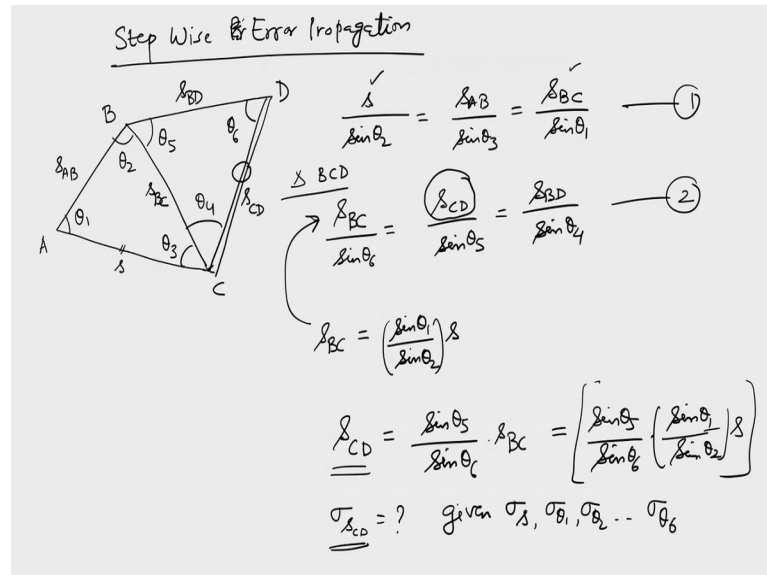 Step Wise Error Propagation
A
B
C
D
S_AB
S_BD
S_BC
S_CD
s
θ₁
θ₂
θ₃
θ₄
θ₅
θ₆
✓ ✓
s/sinθ₂ = S_AB/sinθ₃ = S_BC/sinθ₁ — ①
Δ BCD
S_BC/sinθ₆ = S_CD/sinθ₅ = S_BD/sinθ₄ — ②
S_BC = (sinθ₁/sinθ₂) s
S_CD = sinθ₅/sinθ₆ · S_BC = [sinθ₅/sinθ₆ · (sinθ₁/sinθ₂) s]
σ_S_CD = ? given σ_s, σ_θ₁, σ_θ₂ .. σ_θ₆